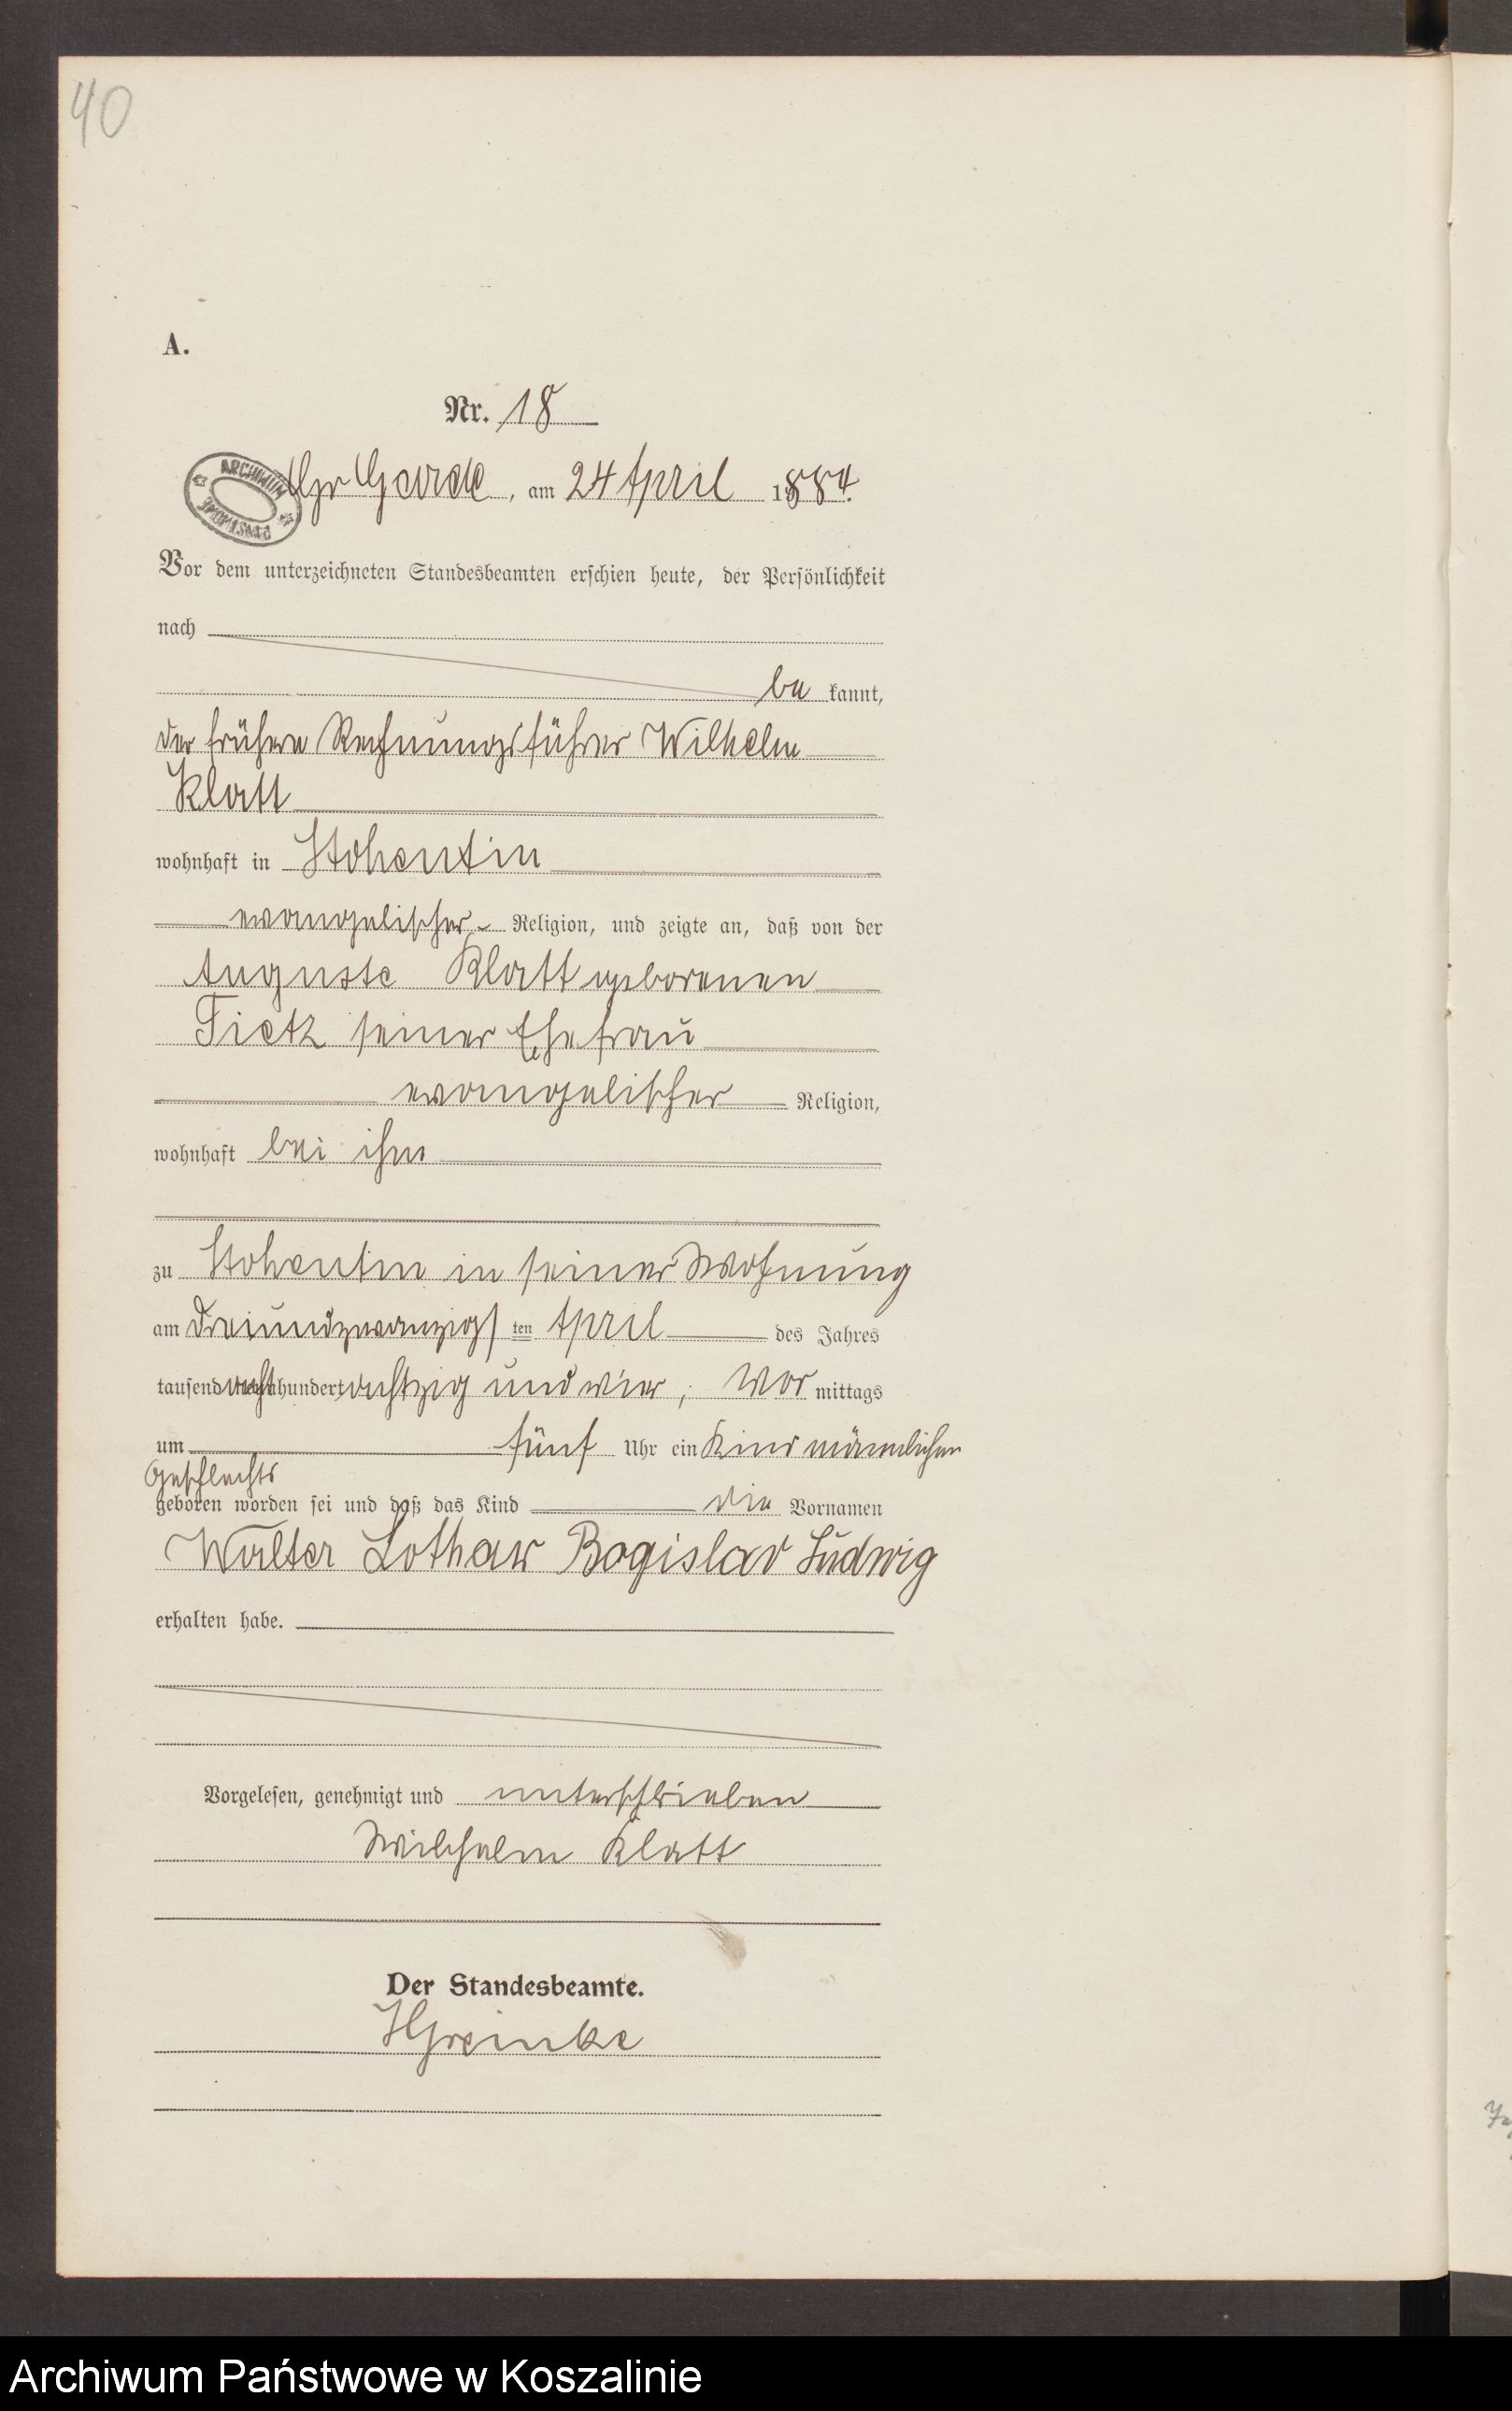 40
A.
Nr. 18
ARCHIWUM PAŃSTWOWE
Gr Garde, am 24 April 1884.
Vor dem unterzeichneten Standesbeamten erschien heute, der Persönlichkeit
nach
be kannt,
der frühere Rechnungsführer Wilhelm
Klatt
wohnhaft in Stohentin
evangelischer Religion, und zeigte an, daß von der
Auguste Klatt geborenen
Tietz seiner Ehefrau
evangelischer Religion,
wohnhaft bei ihm
zu Stohentin in seiner Wohnung
am Dreiundzwanzigsten April des Jahres
tausend acht hundert achtzig und vier, Vor mittags
um fünf Uhr ein Kind männlichen
Geschlechts
geboren worden sei und daß das Kind die Vornamen
Walter Lothar Bogislav Ludwig
erhalten habe.
Vorgelesen, genehmigt und unterschrieben
Wilhelm Klatt
Der Standesbeamte.
HGreinke
Archiwum Państwowe w Koszalinie